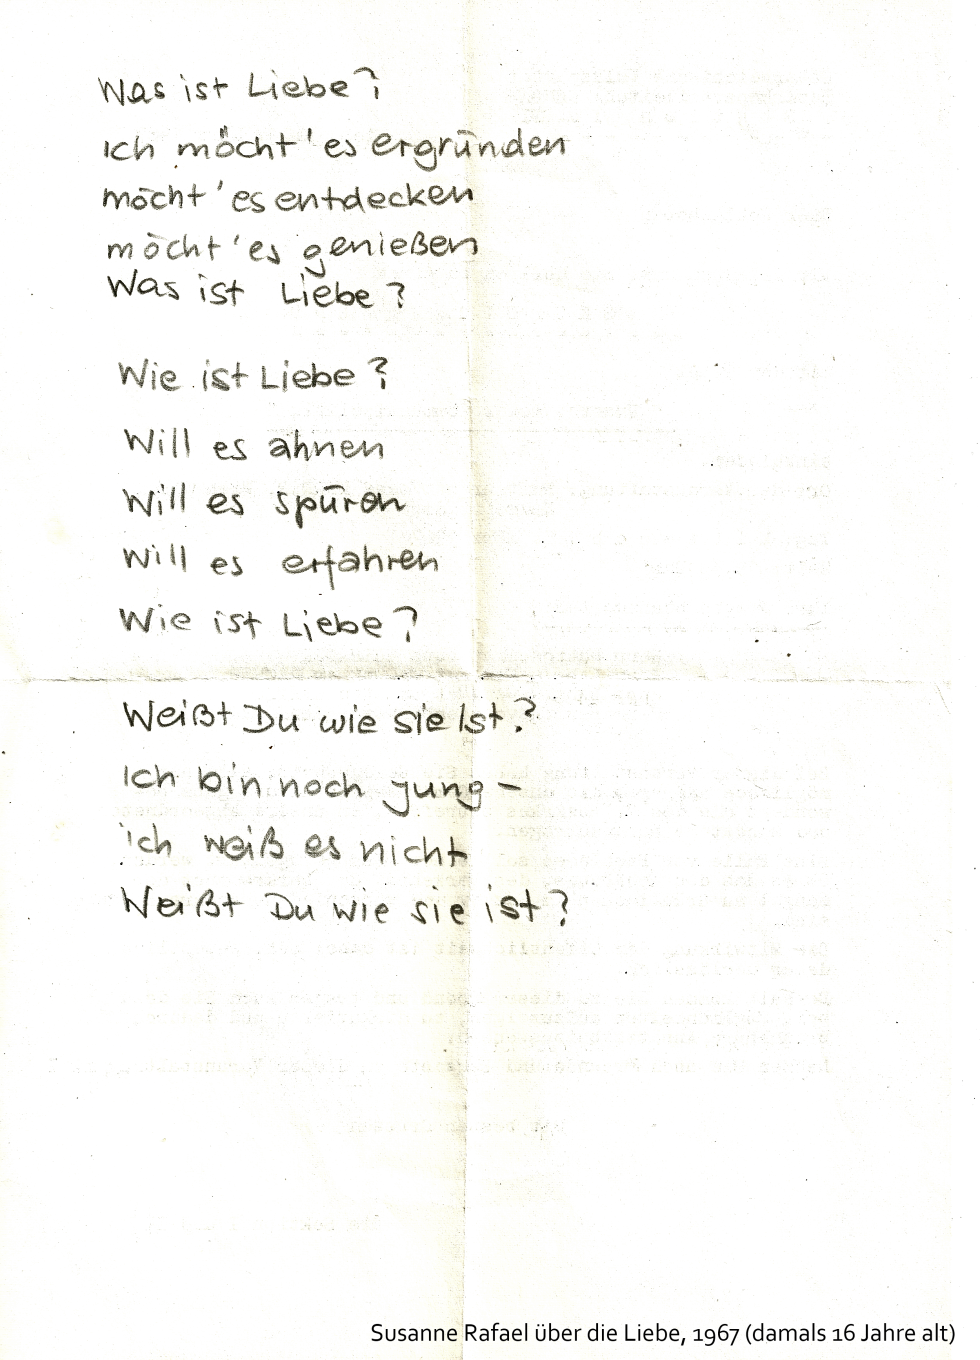 Was ist Liebe?
Ich möcht' es ergründen
möcht' es entdecken
möcht' es genießen
Was ist Liebe?
Wie ist Liebe?
Will es ahnen
Will es spüren
Will es erfahren
Wie ist Liebe?
Weißt Du wie sie Ist?
Ich bin noch jung –
ich weiß es nicht
Weißt Du wie sie ist?
Susanne Rafael über die Liebe, 1967 (damals 16 Jahre alt)